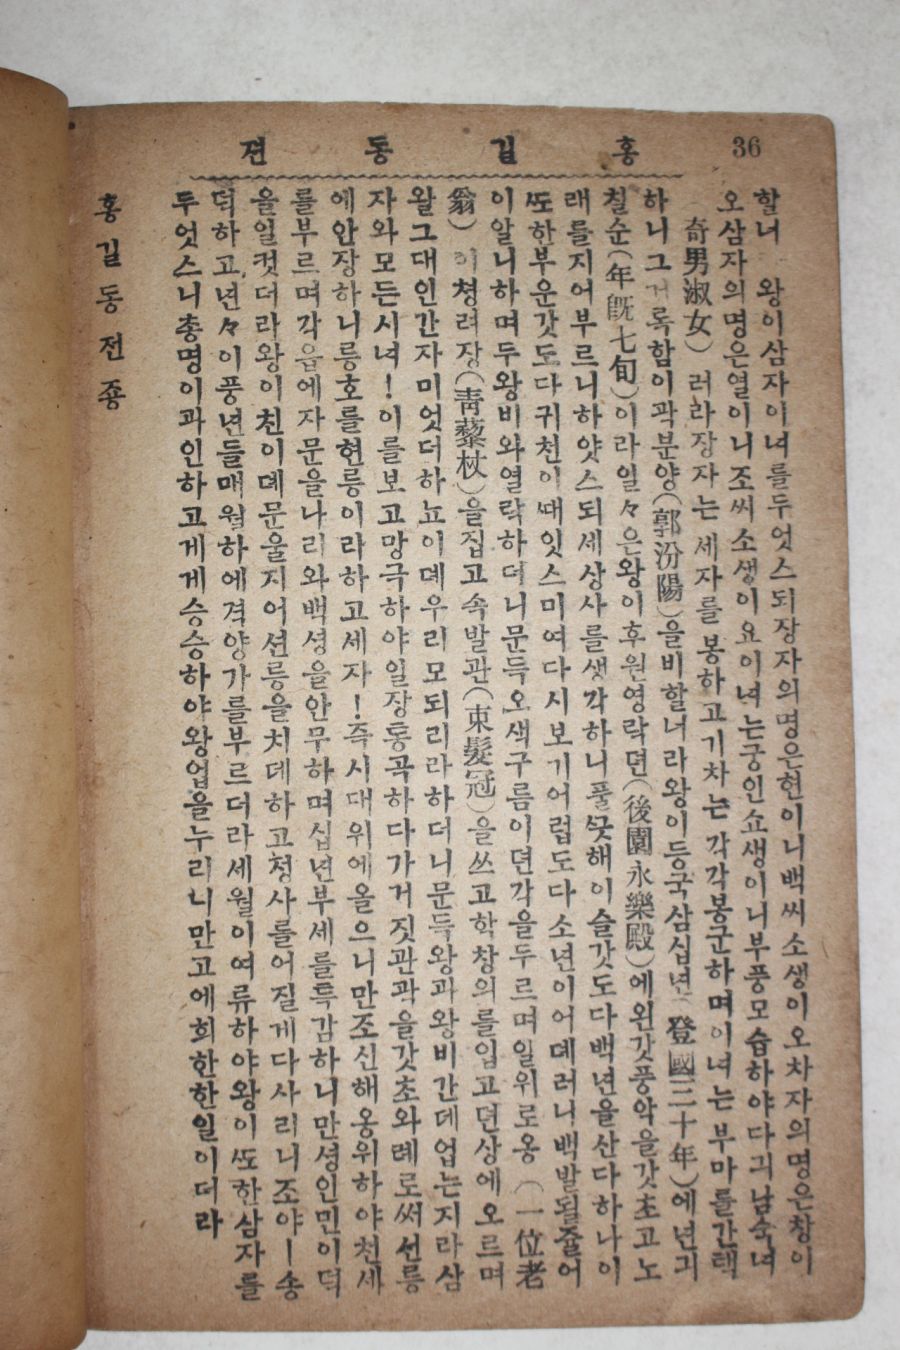 36
홍길동젼
할너 왕이삼자이녀를두엇스되장자의명은현이니백씨소생이오차자의명은창이
오삼자의명은열이니조씨소생이요이녀는궁인쇼생이니부풍모습하야다긔남숙녀
(奇男淑女)러라장자는세자를봉하고기차는각각봉군하며이녀는부마를간택
하니그거록함이곽분양(郭汾陽)을비할너라왕이등국삼십년(登國三十年)에년긔
칠순(年旣七旬)이라일々은왕이후원영락뎐(後園永樂殿)에왼갓풍악을갓초고노
래를지어부르니하얏스되세상사를생각하니풀ᄭᅳᆺ해이슬갓도다백년을산다하나이
ᄯᅩ한부운갓도다귀천이ᄯᅢ잇스미여다시보기어렵도다소년이어뎨러니백발될쥴어
이알니하며두왕비와열락하더니문득오색구름이뎐각을두르며일위로옹(一位老
翁)이쳥려장(靑藜杖)을집고속발관(束髮冠)을쓰고학창의를입고뎐상에오르며
왈그대인간자미엇더하뇨이뎨우리모되리라하더니문득왕과왕비간데업는지라삼
자와모든시녀!이를보고망극하야일장통곡하다가거짓관곽을갓초와례로써선릉
에안장하니릉호를현릉이라하고세자!즉시대위에올으니만조신해옹위하야천세
를부르며각읍에자문을나리와백셩을안무하며십년부세를특감하니만셩인민이덕
을일컷더라왕이친이뎨문을지어션릉을치뎨하고졍사를어질게다사리니조야ㅣ송
덕하고년々이풍년들매월하에격양가를부르더라세월이여류하야왕이ᄯᅩ한삼자를
두엇스니총명이과인하고계계승승하야왕업을누리니만고에희한한일이더라
홍길동전죵